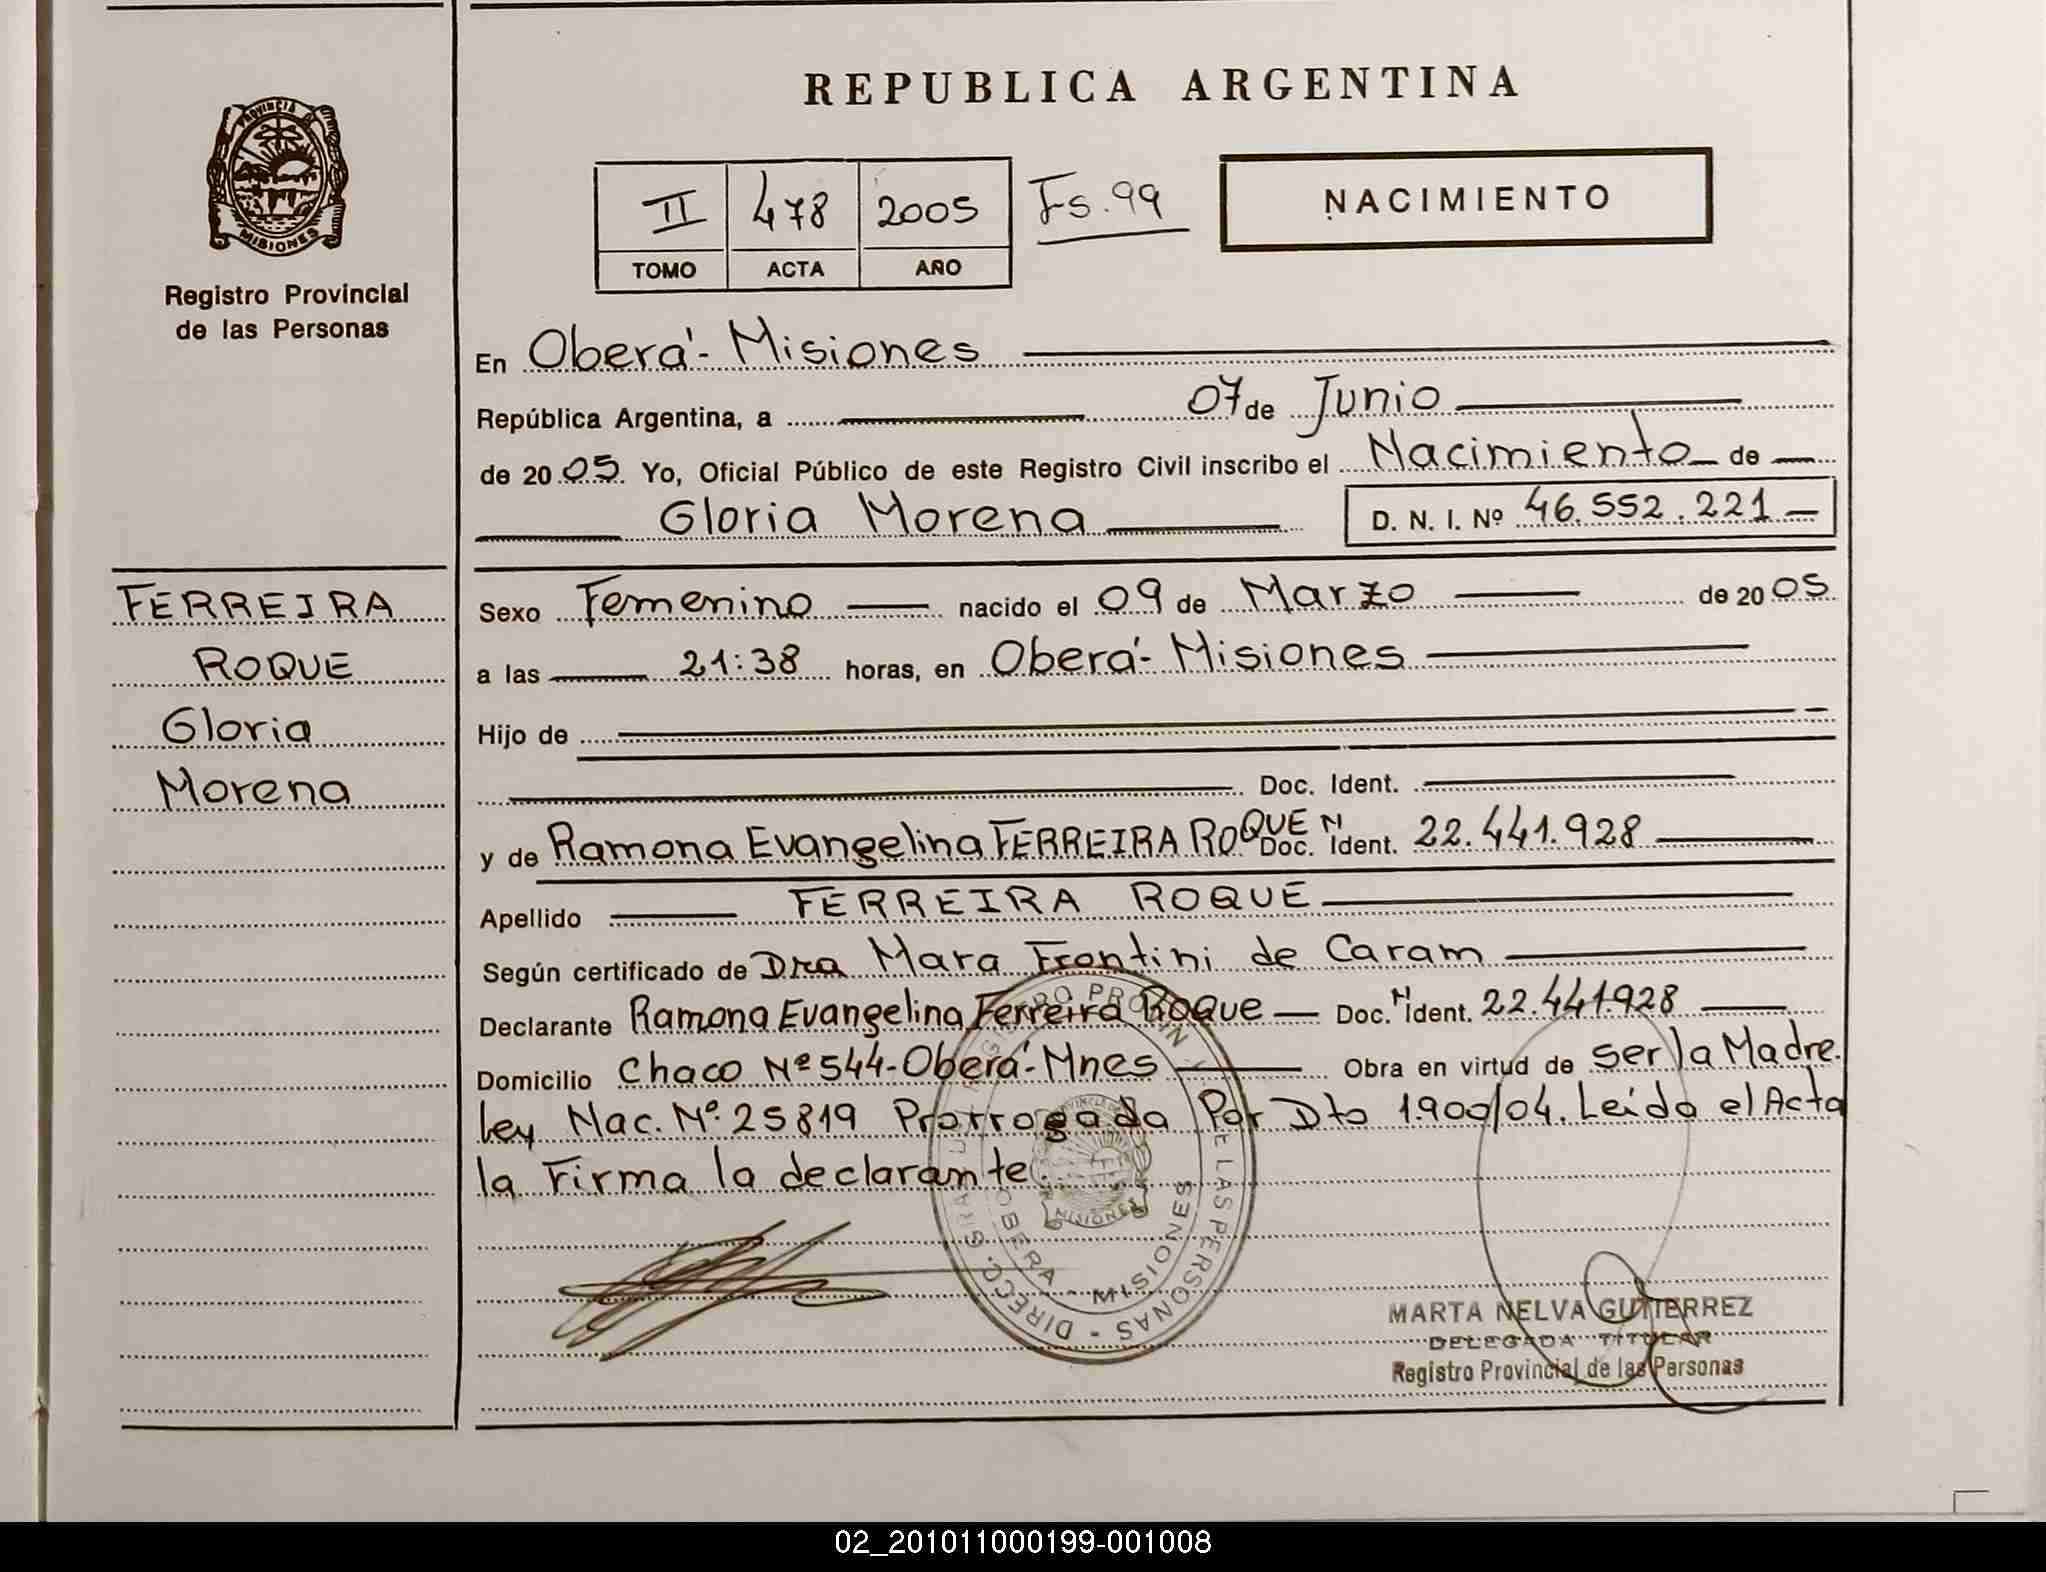 REPUBLICA ARGENTINA
PROVINCIA DE
MISIONES
Registro Provincial
de las Personas
II 478 2005 Fs. 99
TOMO ACTA AÑO
NACIMIENTO
En Oberá - Misiones
República Argentina, a 07 de Junio
de 2005. Yo, Oficial Público de este Registro Civil inscribo el Nacimiento de
Gloria Morena D. N. I. Nº 46.552.221
FERREIRA
ROQUE
Gloria
Morena
Sexo Femenino nacido el 09 de Marzo de 2005
a las 21:38 horas, en Oberá - Misiones
Hijo de
Doc. Ident.
y de Ramona Evangelina FERREIRA ROQUE Doc. N Ident. 22.441.928
Apellido FERREIRA ROQUE
Según certificado de Dra Mara Frontini de Caram
Declarante Ramona Evangelina Ferreira Roque Doc. N Ident. 22.441.928
Domicilio Chaco Nº 544 - Oberá - Mnes Obra en virtud de ser la Madre.
Ley Nac. Nº 25819 Prorrogada Por Dto 1.900/04. Leída el Acta
la Firma la declarante.
MISIONES
OBERA - MISIONES
MARTA NELVA GUTIERREZ
DELEGADA TITULAR
Registro Provincial de las Personas
02_201011000199-001008